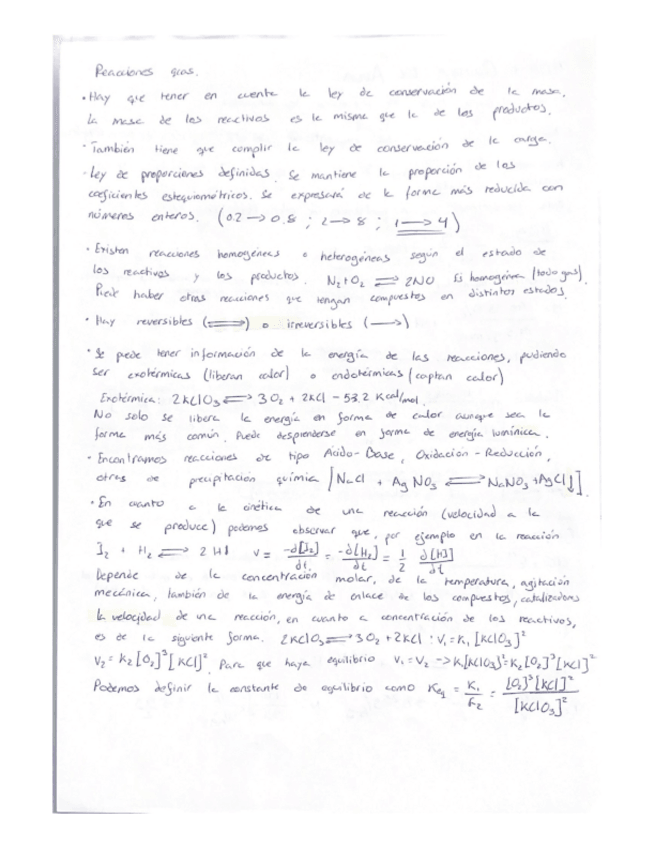 Reacciones qcas.
· Hay que tener en cuenta la ley de conservación de la masa.
La masa de los reactivos es la misma que la de los productos.
· También tiene que complir la ley de conservación de la carga.
· Ley de proporciones definidas. Se mantiene la proporción de los
coeficientes estequiométricos. Se expresará de la forma más reducida con
números enteros. (0.2 → 0.8 ; 2 → 8 ; 1 → 4)
· Existen reacciones homogéneas o heterogéneas según el estado de
los reactivos y los productos. N₂+O₂ ⇌ 2NO Es homogénea (todo gas).
Puede haber otras reacciones que tengan compuestos en distintos estados.
· Hay reversibles (⇌) o irreversibles (→)
· Se puede tener información de la energía de las reacciones, pudiendo
ser exotérmicas (liberan calor) o endotérmicas (captan calor)
Exotérmica: 2KClO₃ ⇌ 3O₂ + 2KCl - 53,2 Kcal/mol.
No solo se libera la energía en forma de calor aunque sea la
forma más común. Puede desprenderse en forma de energía lumínica.
· Encontramos reacciones de tipo Ácido-Base, Oxidación-Reducción,
otras de precipitación química [NaCl + AgNO₃ ⇌ NaNO₃ + AgCl↓].
· En cuanto a la cinética de una reacción (velocidad a la
que se produce) podemos observar que, por ejemplo en la reacción
I₂ + H₂ ⇌ 2HI V = -d[I₂]/dt = -d[H₂]/dt = 1/2 d[HI]/dt
Depende de la concentración molar, de la temperatura, agitación
mecánica, también de la energía de enlace de los compuestos, catalizadores
La velocidad de una reacción, en cuanto a concentración de los reactivos,
es de la siguiente forma. 2KClO₃ ⇌ 3O₂ + 2KCl : V₁ = K₁ [KClO₃]²
V₂ = K₂ [O₂]³ [KCl]². Para que haya equilibrio V₁ = V₂ → K₁[KClO₃]² = K₂[O₂]³[KCl]²
Podemos definir la constante de equilibrio como Keq = K₁/K₂ = [O₂]³[KCl]²/[KClO₃]²